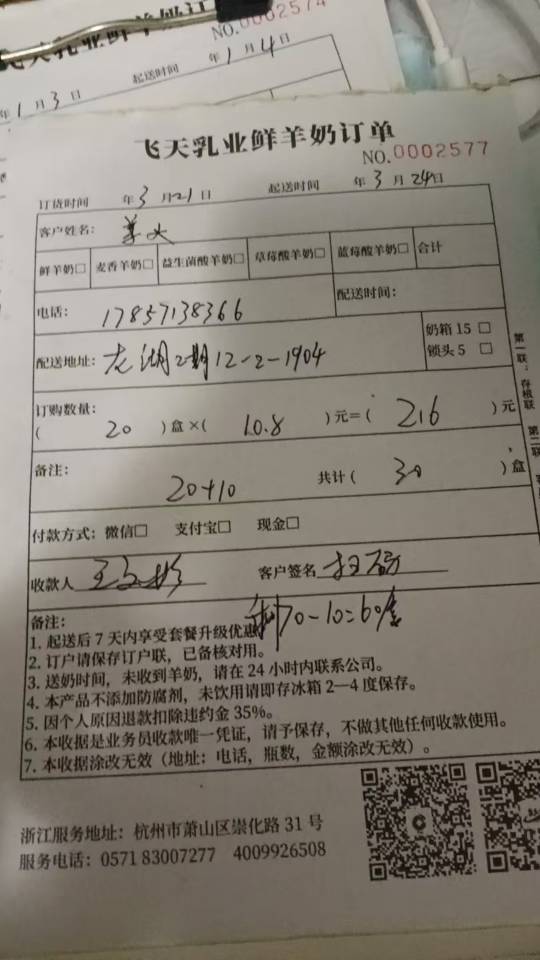 飞天乳业鲜羊奶订
NO.0002574
年1月3日 起送时间 年1月4日
飞天乳业鲜羊奶订单
NO.0002577
订货时间 年3月21日 起送时间 年3月24日
客户姓名:
鲜羊奶□ 麦香羊奶□ 益生菌酸羊奶□ 草莓酸羊奶□ 蓝莓酸羊奶□ 合计
电话: 17857138366 配送时间:
配送地址: 龙湖2期12-2-1904
奶箱 15 □
锁头 5 □
订购数量:
( 20 )盒×( 10.8 )元=( 216 )元
备注: 20+10 共计( 30 )盒
付款方式: 微信□ 支付宝□ 现金□
收款人 客户签名 扫码
70-10=60
备注:
1. 起送后 7 天内享受套餐升级优惠
2. 订户请保存订户联，已备核对用。
3. 送奶时间，未收到羊奶，请在 24 小时内联系公司。
4. 本产品不添加防腐剂，未饮用请即存冰箱 2—4 度保存。
5. 因个人原因退款扣除违约金 35%。
6. 本收据是业务员收款唯一凭证，请予保存，不做其他任何收款使用。
7. 本收据涂改无效（地址：电话，瓶数，金额涂改无效）。
浙江服务地址：杭州市萧山区崇化路 31 号
服务电话：0571 83007277 4009926508
第一联：存根联 第二联